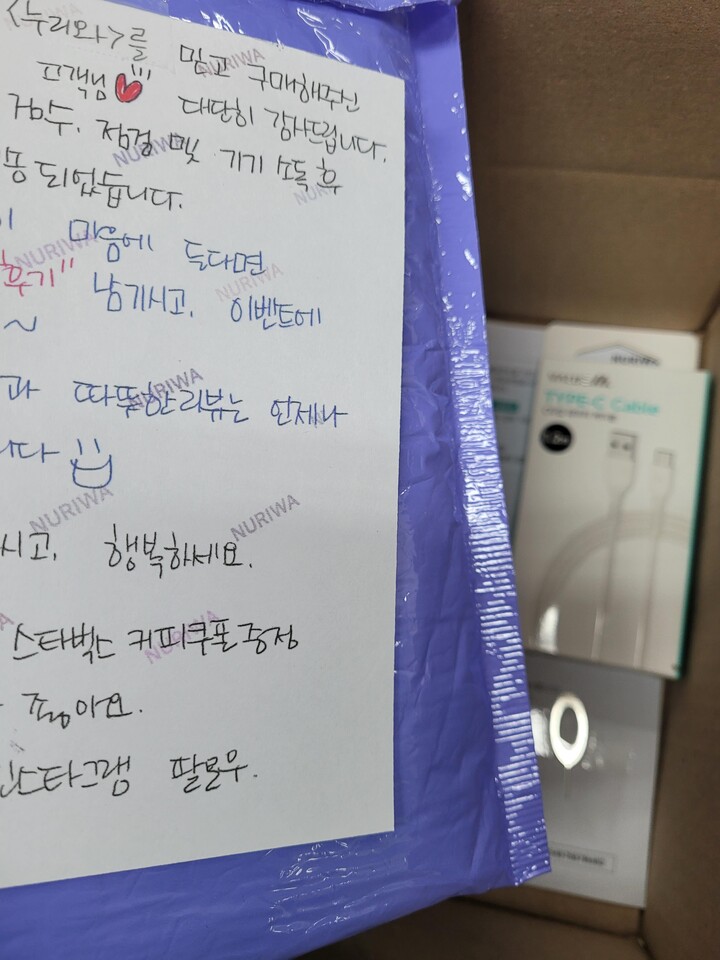 <누리와>를 믿고 구매해주신
고객님 대단히 감사드립니다.
검수. 점검 및 기기 소독 후
되었습니다.
마음에 드다면
후기" 남기시고. 이벤트에
~
과 따뚜한 리뷰는 언제나
니다
시고. 행복하세요.
스타벅스 커피쿠폰 증정
좋아요.
인스타그램 팔로우.
NURIWA
NURIWA
NURIWA
NURIWA
NURIWA
NURIWA
NURIWA
NURIWA
NURIWA
TYPE-C Cable